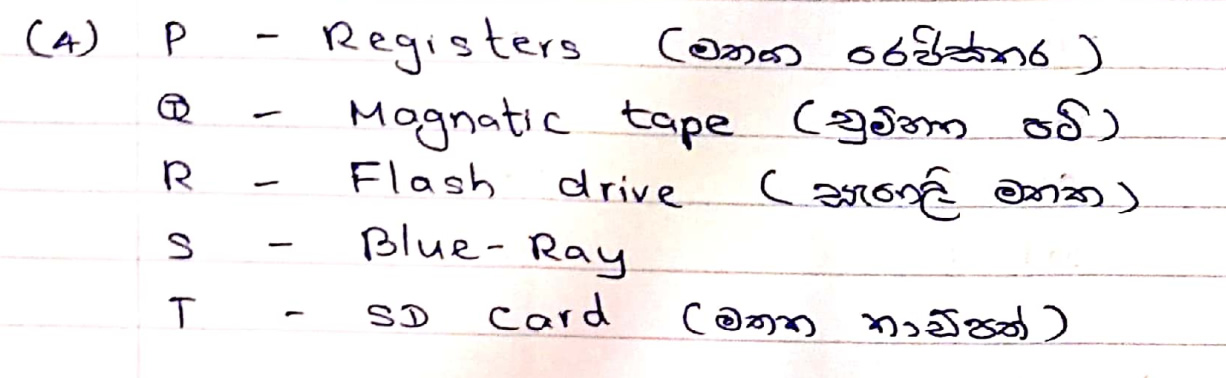 (4) P - Registers (මතක රෙජිස්තර)
Q - Magnatic tape (චුම්භක පටි)
R - Flash drive (සැණෙලි මතක)
S - Blue-Ray
T - SD card (මතක කාඩ්පත්)